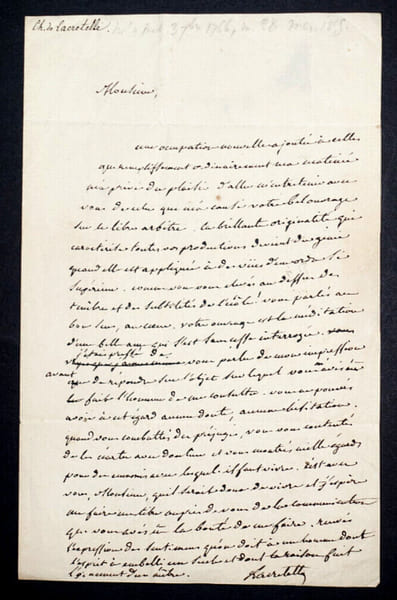 Ch. de Lacretelle.
Monsieur,
une occupation nouvelle ajoutée à celle
qui remplissent ordinairement ma matinée
m'a privé du plaisir d'aller m'entretenir avec
vous de celui que m'a causé votre bel ouvrage
sur le libre arbitre. la brillante originalité qui
caractérise toutes vos productions devient du génie
quand elle est appliquée à des vues d'un ordre si
suprême. comme vous vous élevés au dessus des
et des subtilités de l'école! vous partés au
au cœur. votre ouvrage est la méditation
d'une belle ame qui s'est sans cesse interrogée.
j'étais pressé de vous parler de mon impression
avant que de repondre sur l'objet sur lequel vous m'avés
fait l'honneur de me consulter. vous ne pouvés
avoir à cet égard aucun doute, aucune hésitation.
quand vous combattés des préjugés, vous vous contentés
de les écarter avec douceur et vous montrés mille égards
pour des ennemis avec lesquels il faut vivre. C'est avec
vous, Monsieur, qu'il serait doux de vivre et j'espère
au faire un libre auprès de vous de la communication
que vous avés eu la bonté de me faire. recevés
l'expression des sentimens qu'on doit à un homme dont
l'esprit a embelli un siècle et dont la raison fait
l'ornement d'un autre. Lacretelle